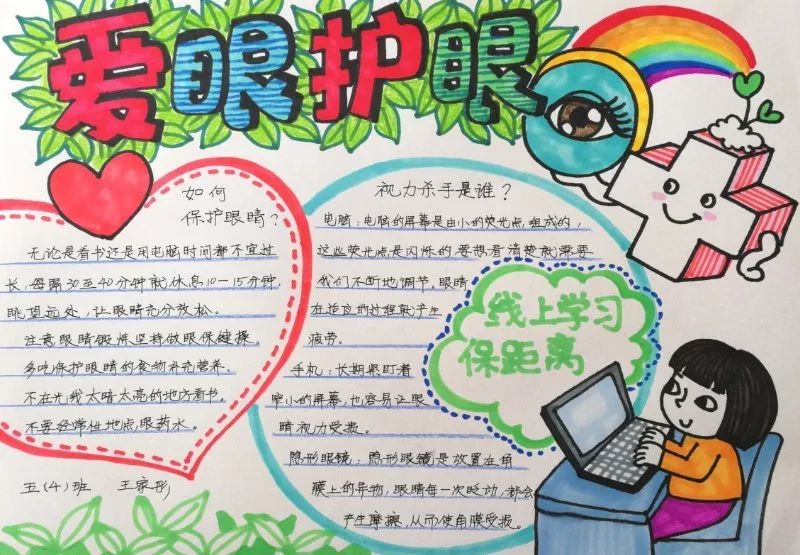 爱眼护眼
如何
保护眼睛?
无论是看书还是用电脑时间都不宜过
长,每隔30至40分钟就休息10-15分钟,
眺望远处,让眼睛充分放松。
注意眼睛锻炼坚持做眼保健操。
多吃保护眼睛的食物补充营养。
不在光线太暗太亮的地方看书。
不要经常性地点眼药水。
五(4)班 王家彤
视力杀手是谁?
电脑:电脑的屏幕是由小的荧光点组成的,
这些荧光点是闪烁的要想看清楚就需要
我们不断地调节,眼睛
在适应的过程就产生
疲劳。
手机:长期紧盯着
窄小的屏幕,也容易让眼
睛视力受损。
隐形眼镜:隐形眼镜是放置在角
膜上的异物,眼睛每一次眨动,都会
产生摩擦,从而使角膜受损。
线上学习
保距离